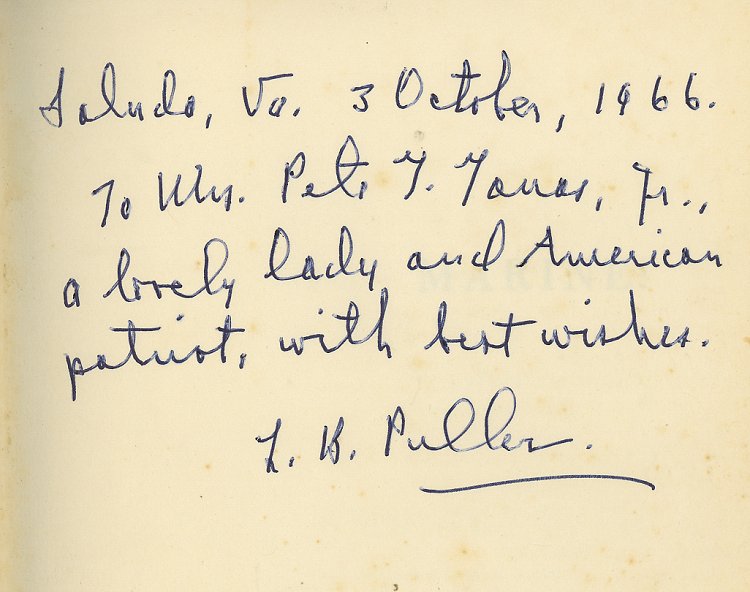 Saluda, Va. 3 October, 1966.
To Mrs. Pete T. , Jr.,
a lovely lady and American
patriot, with best wishes.
L. B. Puller.
MARINE!